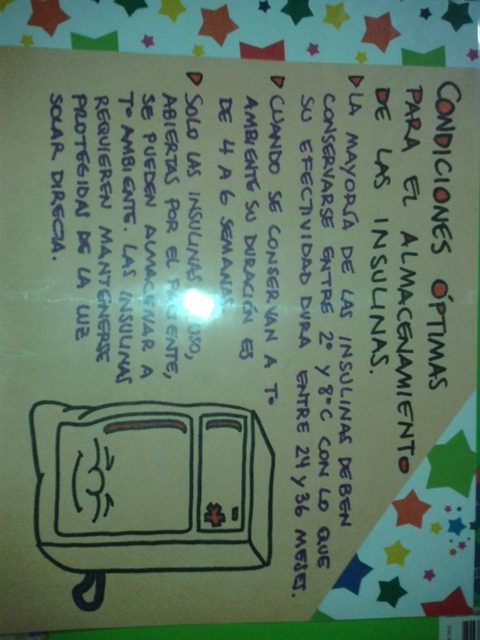 CONDICIONES ÓPTIMAS
PARA EL ALMACENAMIENTO
DE LAS INSULINAS.
LA MAYORÍA DE LAS INSULINAS DEBEN
CONSERVARSE ENTRE 2° Y 8°C CON LO QUE
SU EFECTIVIDAD DURA ENTRE 24 Y 36 MESES.
CUANDO SE CONSERVAN A Tº
AMBIENTE SU DURACIÓN ES
DE 4 A 6 SEMANAS.
SOLO LAS INSULINAS USO,
ABIERTAS POR EL PACIENTE,
SE PUEDEN ALMACENAR A
Tº AMBIENTE. LAS INSULINAS
REQUIEREN MANTENERSE
PROTEGIDAS DE LA LUZ
SOLAR DIRECTA.